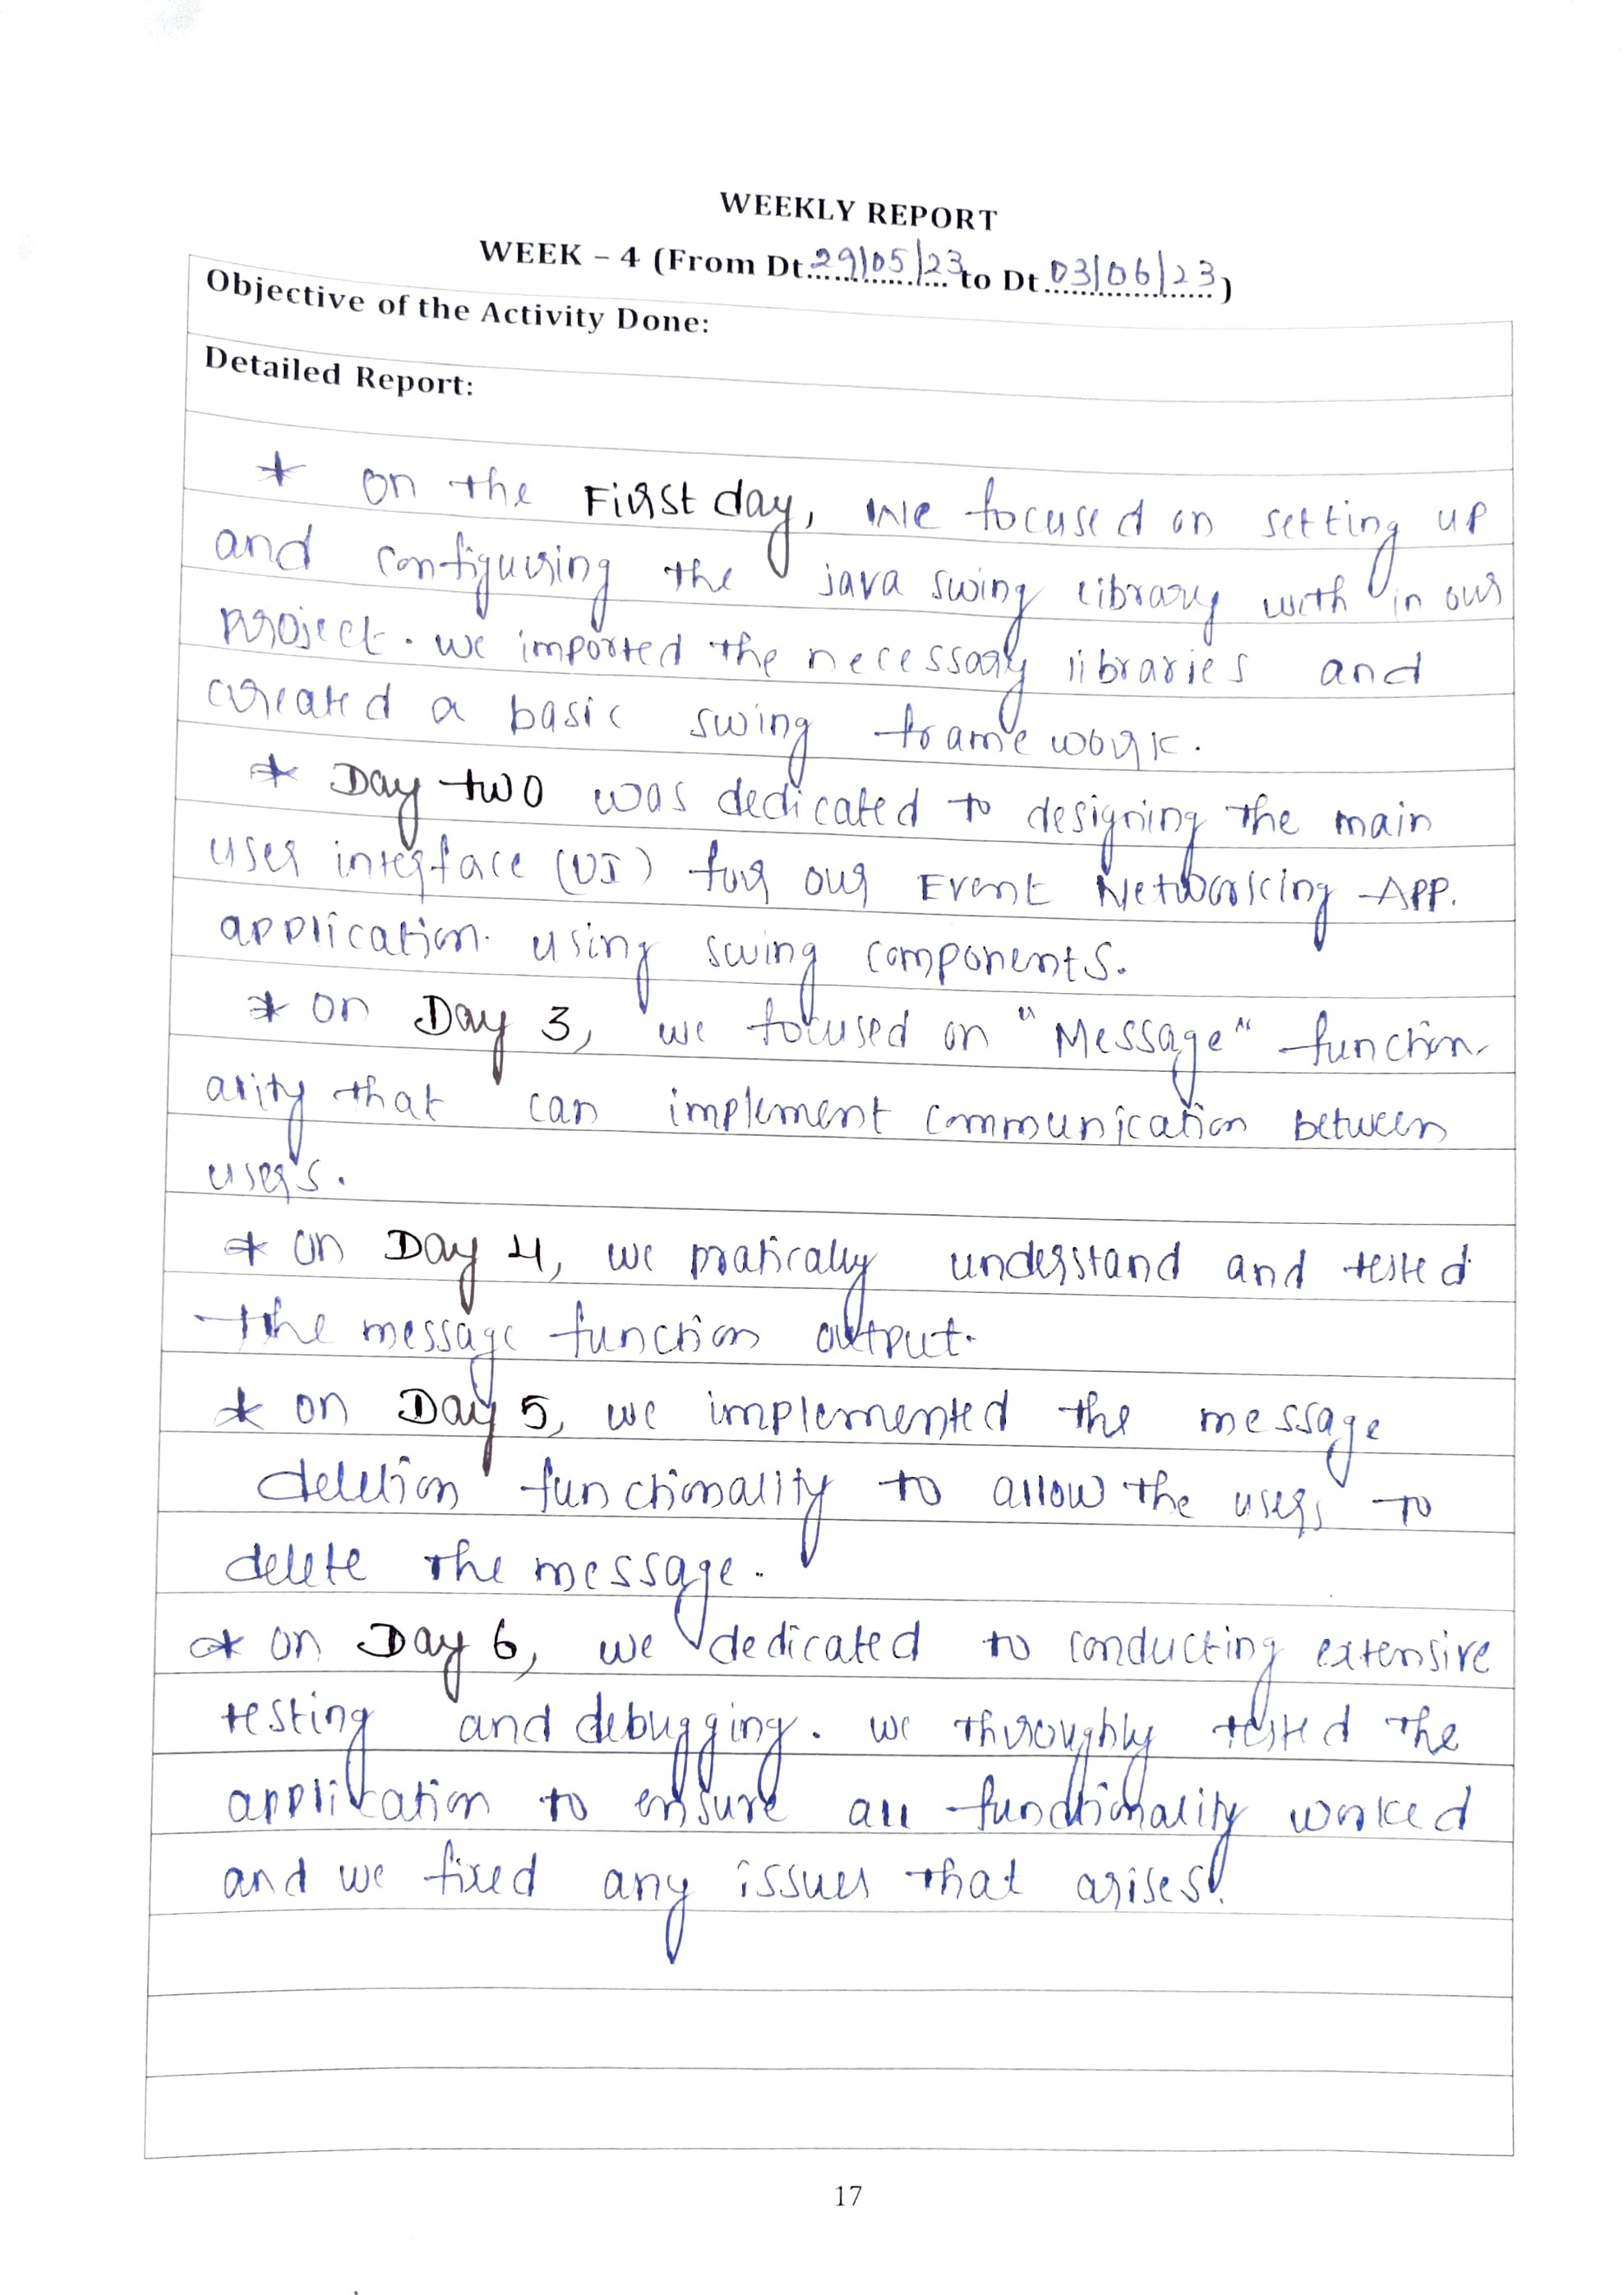 WEEKLY REPORT
WEEK – 4 (From Dt 29/05/23 to Dt 03/06/23)
Objective of the Activity Done:
Detailed Report:
* on the First day, we focused on setting up
and configuring the java swing library with in our
project. we imported the necessary libraries and
created a basic swing frame work.
* Day two was dedicated to designing the main
user interface (UI) for our Event Networking App.
application. using swing components.
* on Day 3, we focused on "Message" function-
arity that can implement communication between
users.
* on Day 4, we pratically understand and tested
the message function output.
* on Day 5, we implemented the message
deletion functionality to allow the users to
delete the message.
* on Day 6, we dedicated to conducting extensive
testing and debugging. we throughly tested the
application to ensure all functionality worked
and we fixed any issues that arises.
17